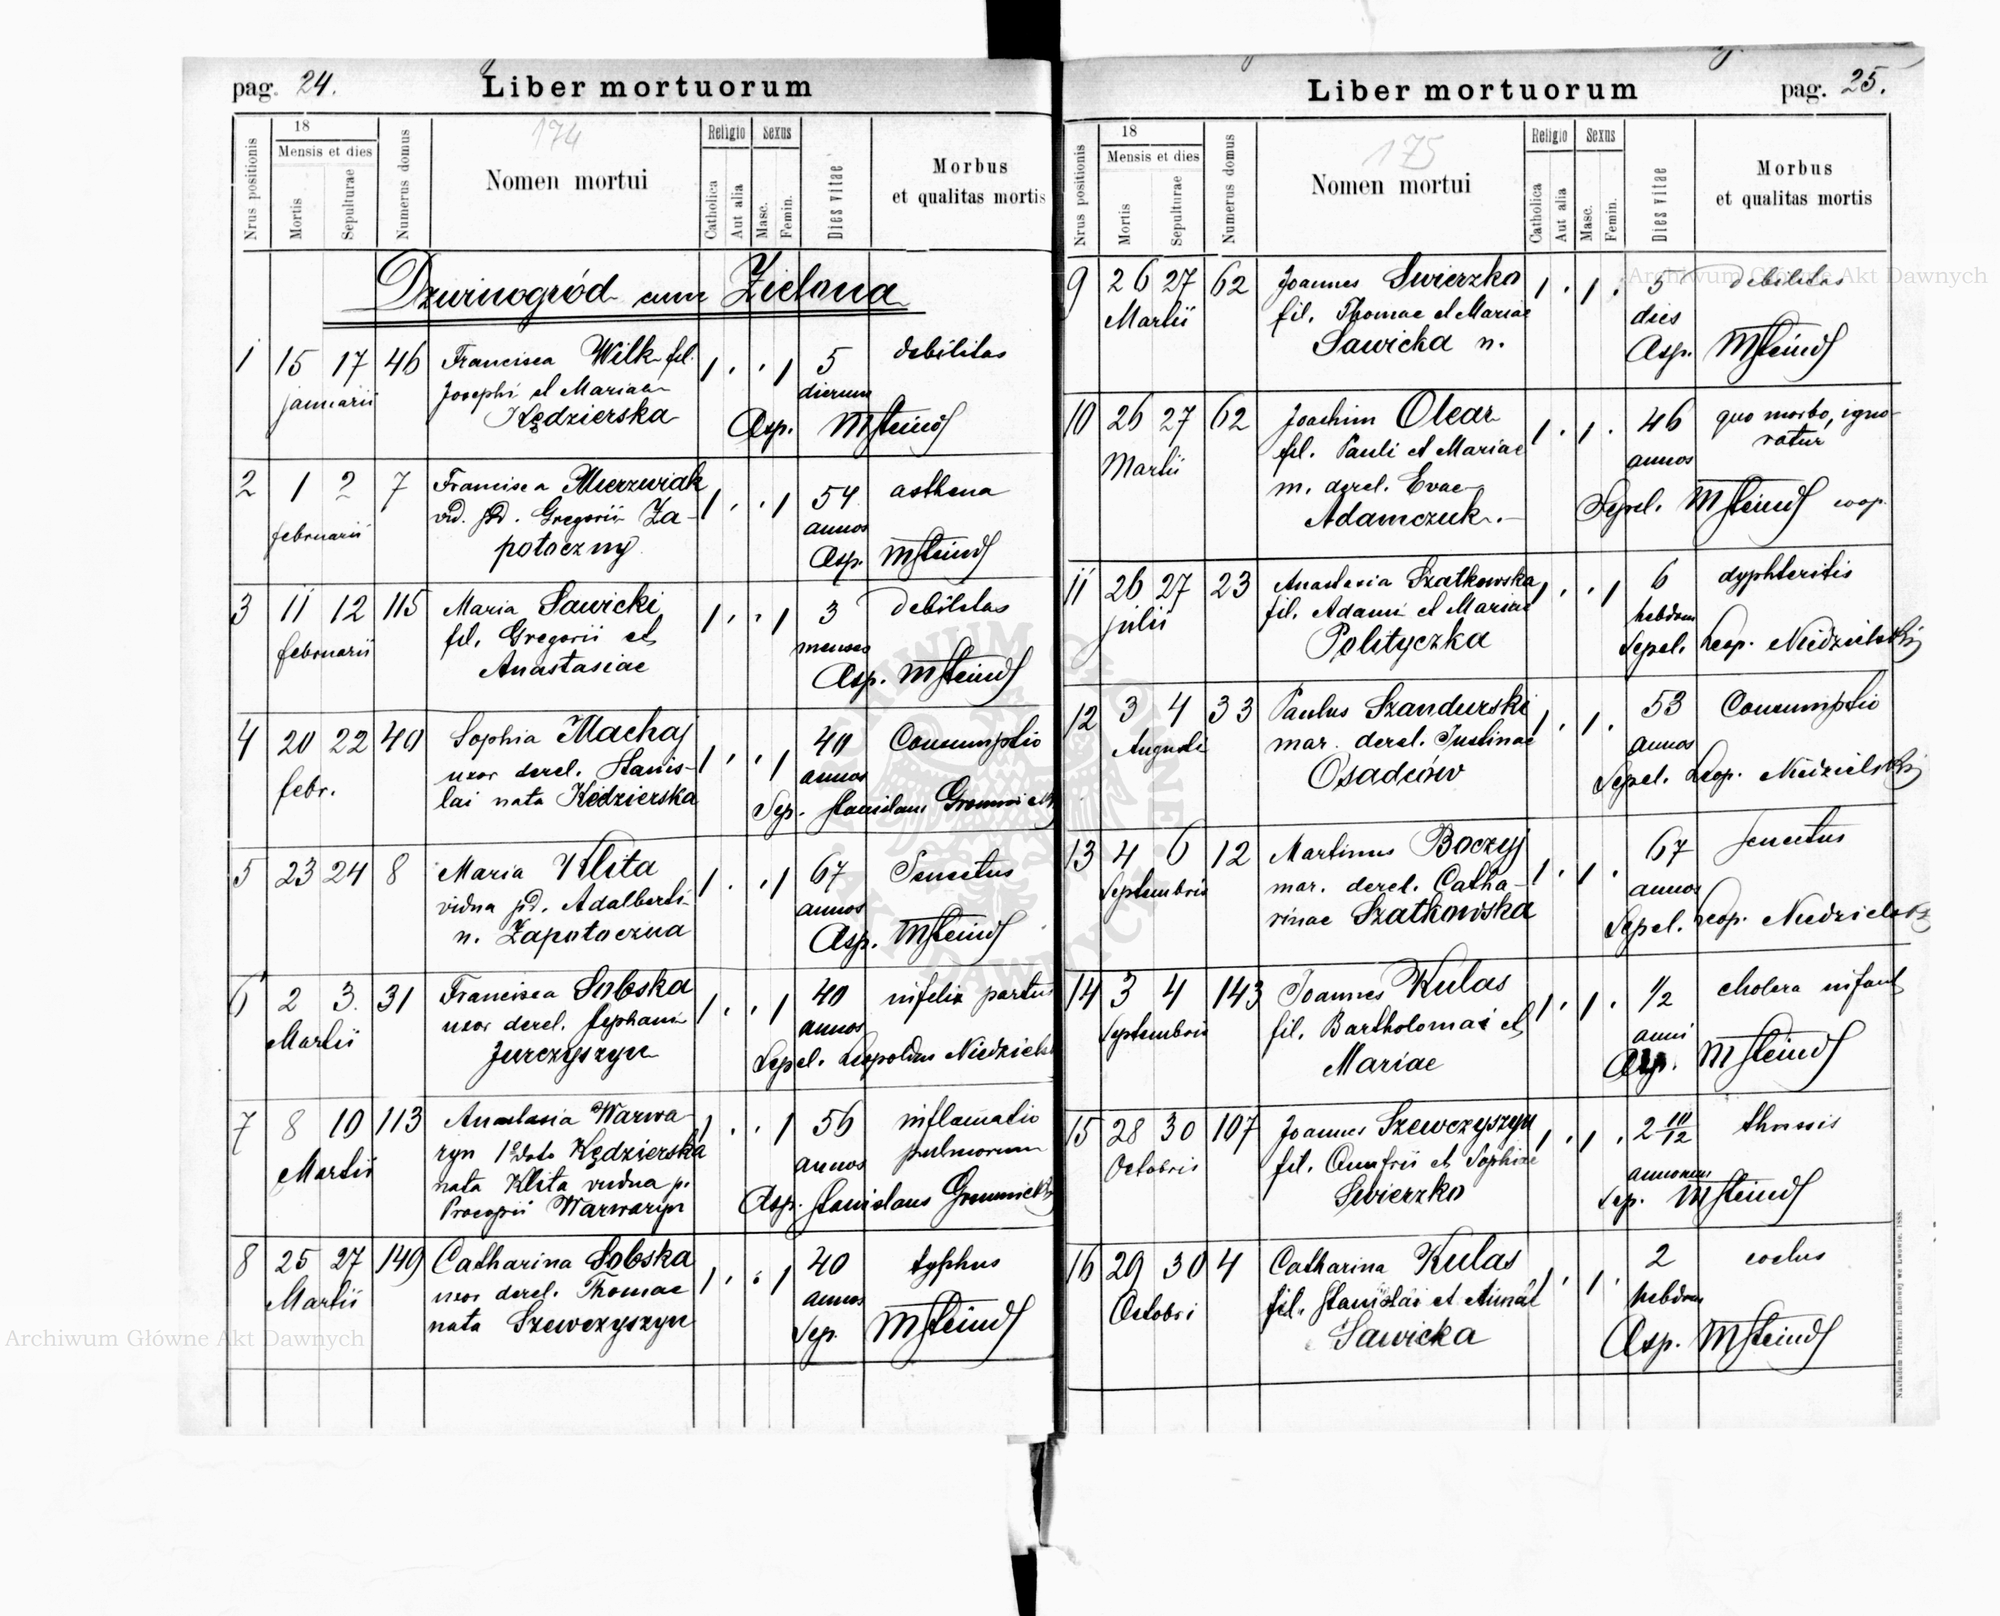 pag. 24.
Liber mortuorum
174
Nrus positionis
18
Mensis et dies
Mortis
Sepulturae
Numerus domus
Nomen mortui
Religio
Catholica
Aut alia
Sexus
Masc.
Femin.
Dies vitae
Morbus
et qualitas mortis
Dzwinogród cum Zielona
1 15 17 46 Francisca Wilk fil. 1 . . 1 5 debilitas
januarii Josephi et Mariae dierum
Kędzierska Asp. MSteindl
2 1 2 7 Francisca Mierzwiak 1 . . 1 54 asthma
februarii vid. pd. Gregorii Za- annos
potoczny Asp. MSteindl
3 11 12 115 Maria Sawicki 1 . . 1 3 debilitas
februarii fil. Gregorii et menses
Anastasiae Asp. MSteindl
4 20 22 40 Sophia Machaj 1 . . 1 40 Consumptio
febr. uxor derel. Stanis- annos
lai nata Kędzierska Sep. Stanislaus Gromnicki
5 23 24 8 Maria Klita 1 . . 1 67 Senectus
vidua pd. Adalberti annos
n. Zapotoczna Asp. MSteindl
6 2 3. 31 Francisca Sobska 1 . . 1 40 infelix partus
Martii uxor derel. Stephani annos
Jurczyszyn Sepel. Leopoldus Niedzielski
7 8 10 113 Anastasia Warwa- 1 . . 1 56 inflamatio
Martii ryn 1o voto Kędzierska annos pulmorum
nata Klita vidua p.
Procopii Warwaryn Asp. Stanislaus Gromnicki
8 25 27 149 Catharina Sobska 1 . . 1 40 typhus
Martii uxor derel. Thomae annos
nata Szewczyszyn Sep. MSteindl
Liber mortuorum
pag. 25.
175
Nrus positionis
18
Mensis et dies
Mortis
Sepulturae
Numerus domus
Nomen mortui
Religio
Catholica
Aut alia
Sexus
Masc.
Femin.
Dies vitae
Morbus
et qualitas mortis
9 26 27 62 Joannes Swierzko 1 . 1 . 5 debilitas
Martii fil. Thomae et Mariae dies
Sawicka n. Asp. MSteindl
10 26 27 62 Joachim Olear 1 . 1 . 46 quo morbo, igno-
Martii fil. Pauli et Mariae annos ratur
m. derel. Evae
Adamczuk. Sepel. MSteindl coop.
11 26 27 23 Anastasia Szatkowska 1 . . 1 6 dyphteritis
julii fil. Adami et Mariae hebdom
Polityczka Sepel. Leop. Niedzielski
12 3 4 33 Paulus Szandurski 1 . 1 . 53 Consumptio
Augusti mar. derel. Justinae annos
Osadców Sepel. Leop. Niedzielski
13 4 6 12 Martinus Boczyj 1 . 1 . 67 senectus
Septembris mar. derel. Catha- annos
rinae Szatkowska Sepel. Leop. Niedzielski
14 3 4 143 Joannes Kulas 1 . 1 . 1/2 cholera infant
Septembris fil. Bartholomai et anni
Mariae Asp. MSteindl
15 28 30 107 Joannes Szewczyszyn 1 . 1 . 2 10/12 thussis
Octobris fil. Onufrii et Sophiae annorum
Swierzko Sep. MSteindl
16 29 30 4 Catharina Kulas 1 . 1 . 2
Octobri fil. Stanislai et hebdom
Sawicka Asp. MSteindl
Nakładem Drukarni Ludowej we Lwowie. 1888.
Archiwum Główne Akt Dawnych
Archiwum Główne Akt Dawnych
ARCHIWUM GŁÓWNE AKT DAWNYCH